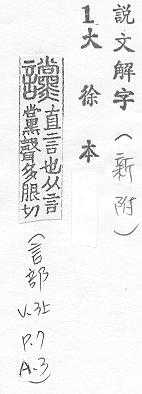 説文解字(新附)
1大徐本
讜 直言也从言
黨聲多朖切
(言部
V.3上
P.7
A.3)